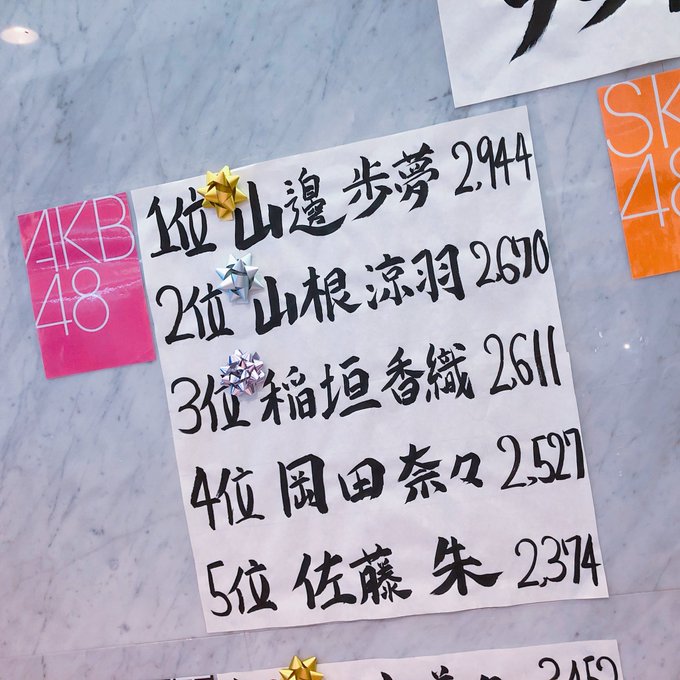 AKB
48
SK
48
1位 山邊 歩夢 2,944
2位 山根 涼羽 2670
3位 稲垣 香織 2,611
4位 岡田 奈々 2,527
5位 佐藤 朱 2,374
3452